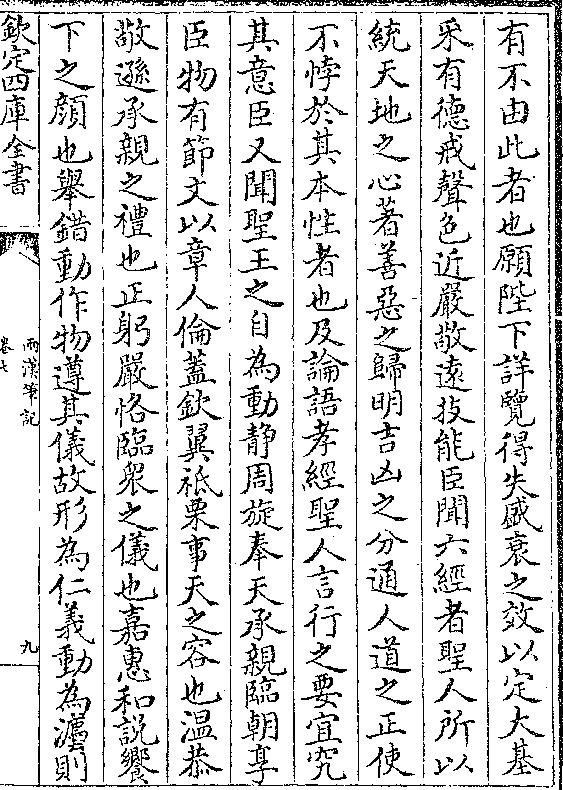 有不由此者也願陛下詳覽得失盛衰之效以定大基
采有德戒聲色近嚴敬遠技能臣聞六經者聖人所以
統天地之心著善惡之歸明吉凶之分通人道之正使
不悖於其本性者也及論語孝經聖人言行之要宜究
其意臣又聞聖王之自為動靜周旋奉天承親臨朝享
臣物有節文以章人倫蓋欽翼祗栗事天之容也温恭
敬遜承親之禮也正躬嚴恪臨衆之儀也嘉惠和說饗
下之顔也舉錯動作物遵其儀故形為仁義動為灋則
欽定四庫全書
兩漢筆記
卷七
九